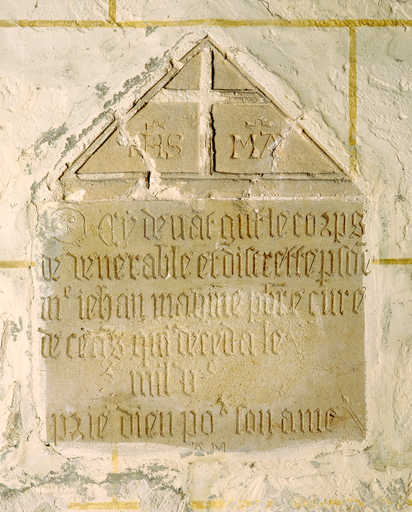 IHS MA
Cy devāt gist le corps
de venerable et discrette psōne
mᵉ iehan pbrē cure
de ceās qui deceda le
mil vᶜ
priē dieu poʳ son ame
AM